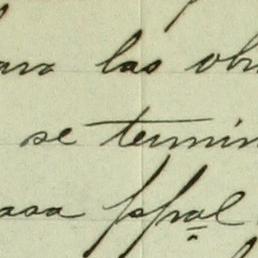 para las obr
se termin
casa ppal